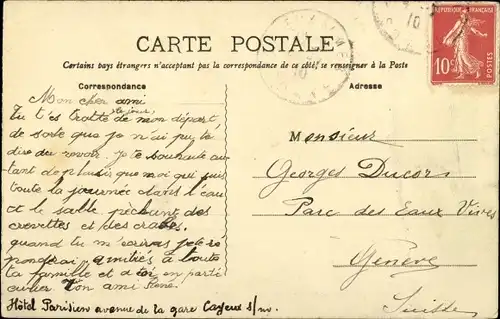 CARTE POSTALE
Certains pays étrangers n'acceptant pas la correspondance de ce côté, se renseigner à la Poste
Correspondance
Adresse
RÉPUBLIQUE FRANÇAISE
10c
POSTES
Mon cher ami
Tu t'es trotté le jour de mon départ
de sorte que je n'ai pu te
dire au revoir. Je te souhaite au
tant de plaisir que moi qui suis
toute la journée dans l'eau
et le sable pêchant des
crevettes et des crabes.
quand tu m'ecriras je te ré
pondrai amitiés à toute
ta famille et a toi en parti
culier Ton ami René
Hôtel Parisien avenue de la gare Cayeux s/m.
Monsieur
Georges Ducors
Parc des Eaux Vives
Genève
Suisse